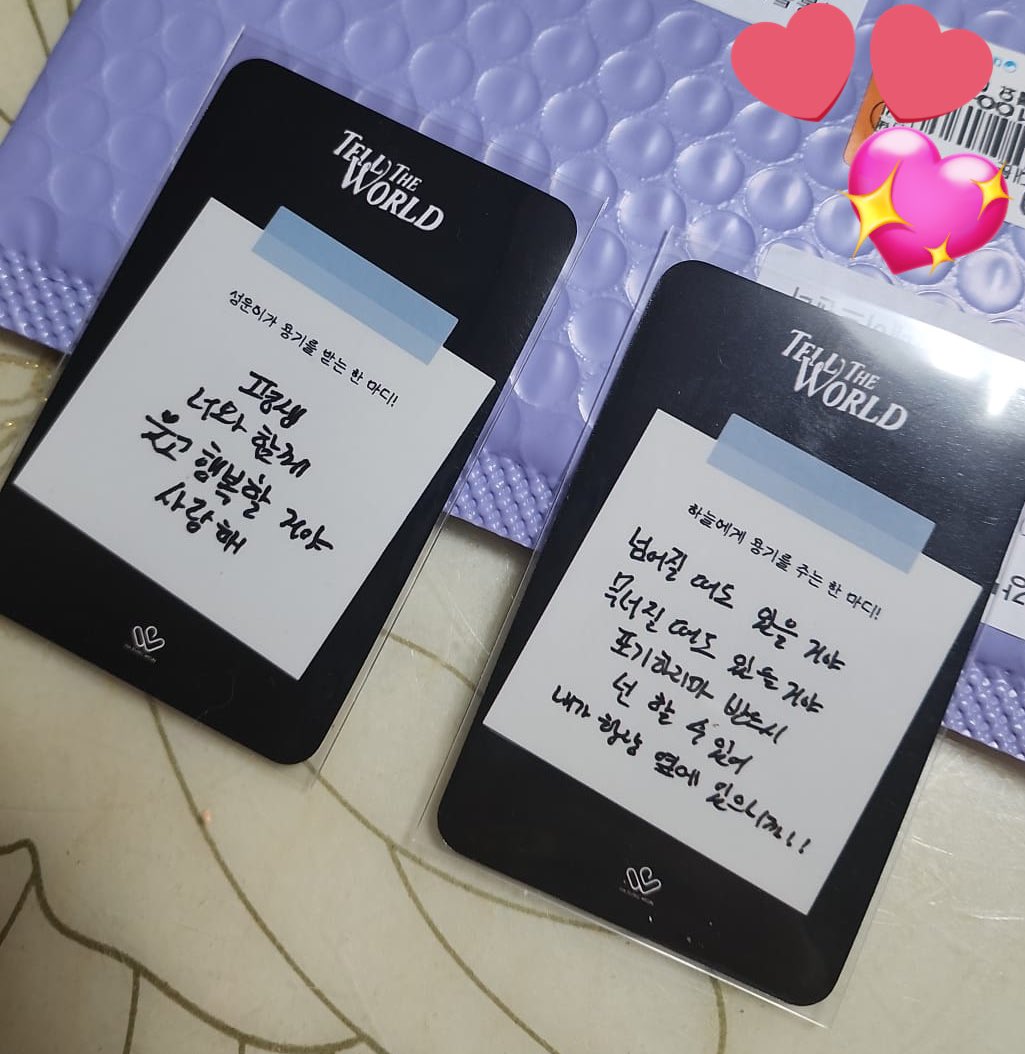 TELL THE
WORLD
성운이가 용기를 받는 한 마디!
평생
너와 함께
웃고 행복할 거야
사랑해
TELL THE
WORLD
하늘에게 용기를 주는 한 마디!
넘어질 때도 있을 거야
무서질 때도 있을 거야
포기하리마 반드시
넌 할 수 있어
내가 항상 옆에 있으니까!!